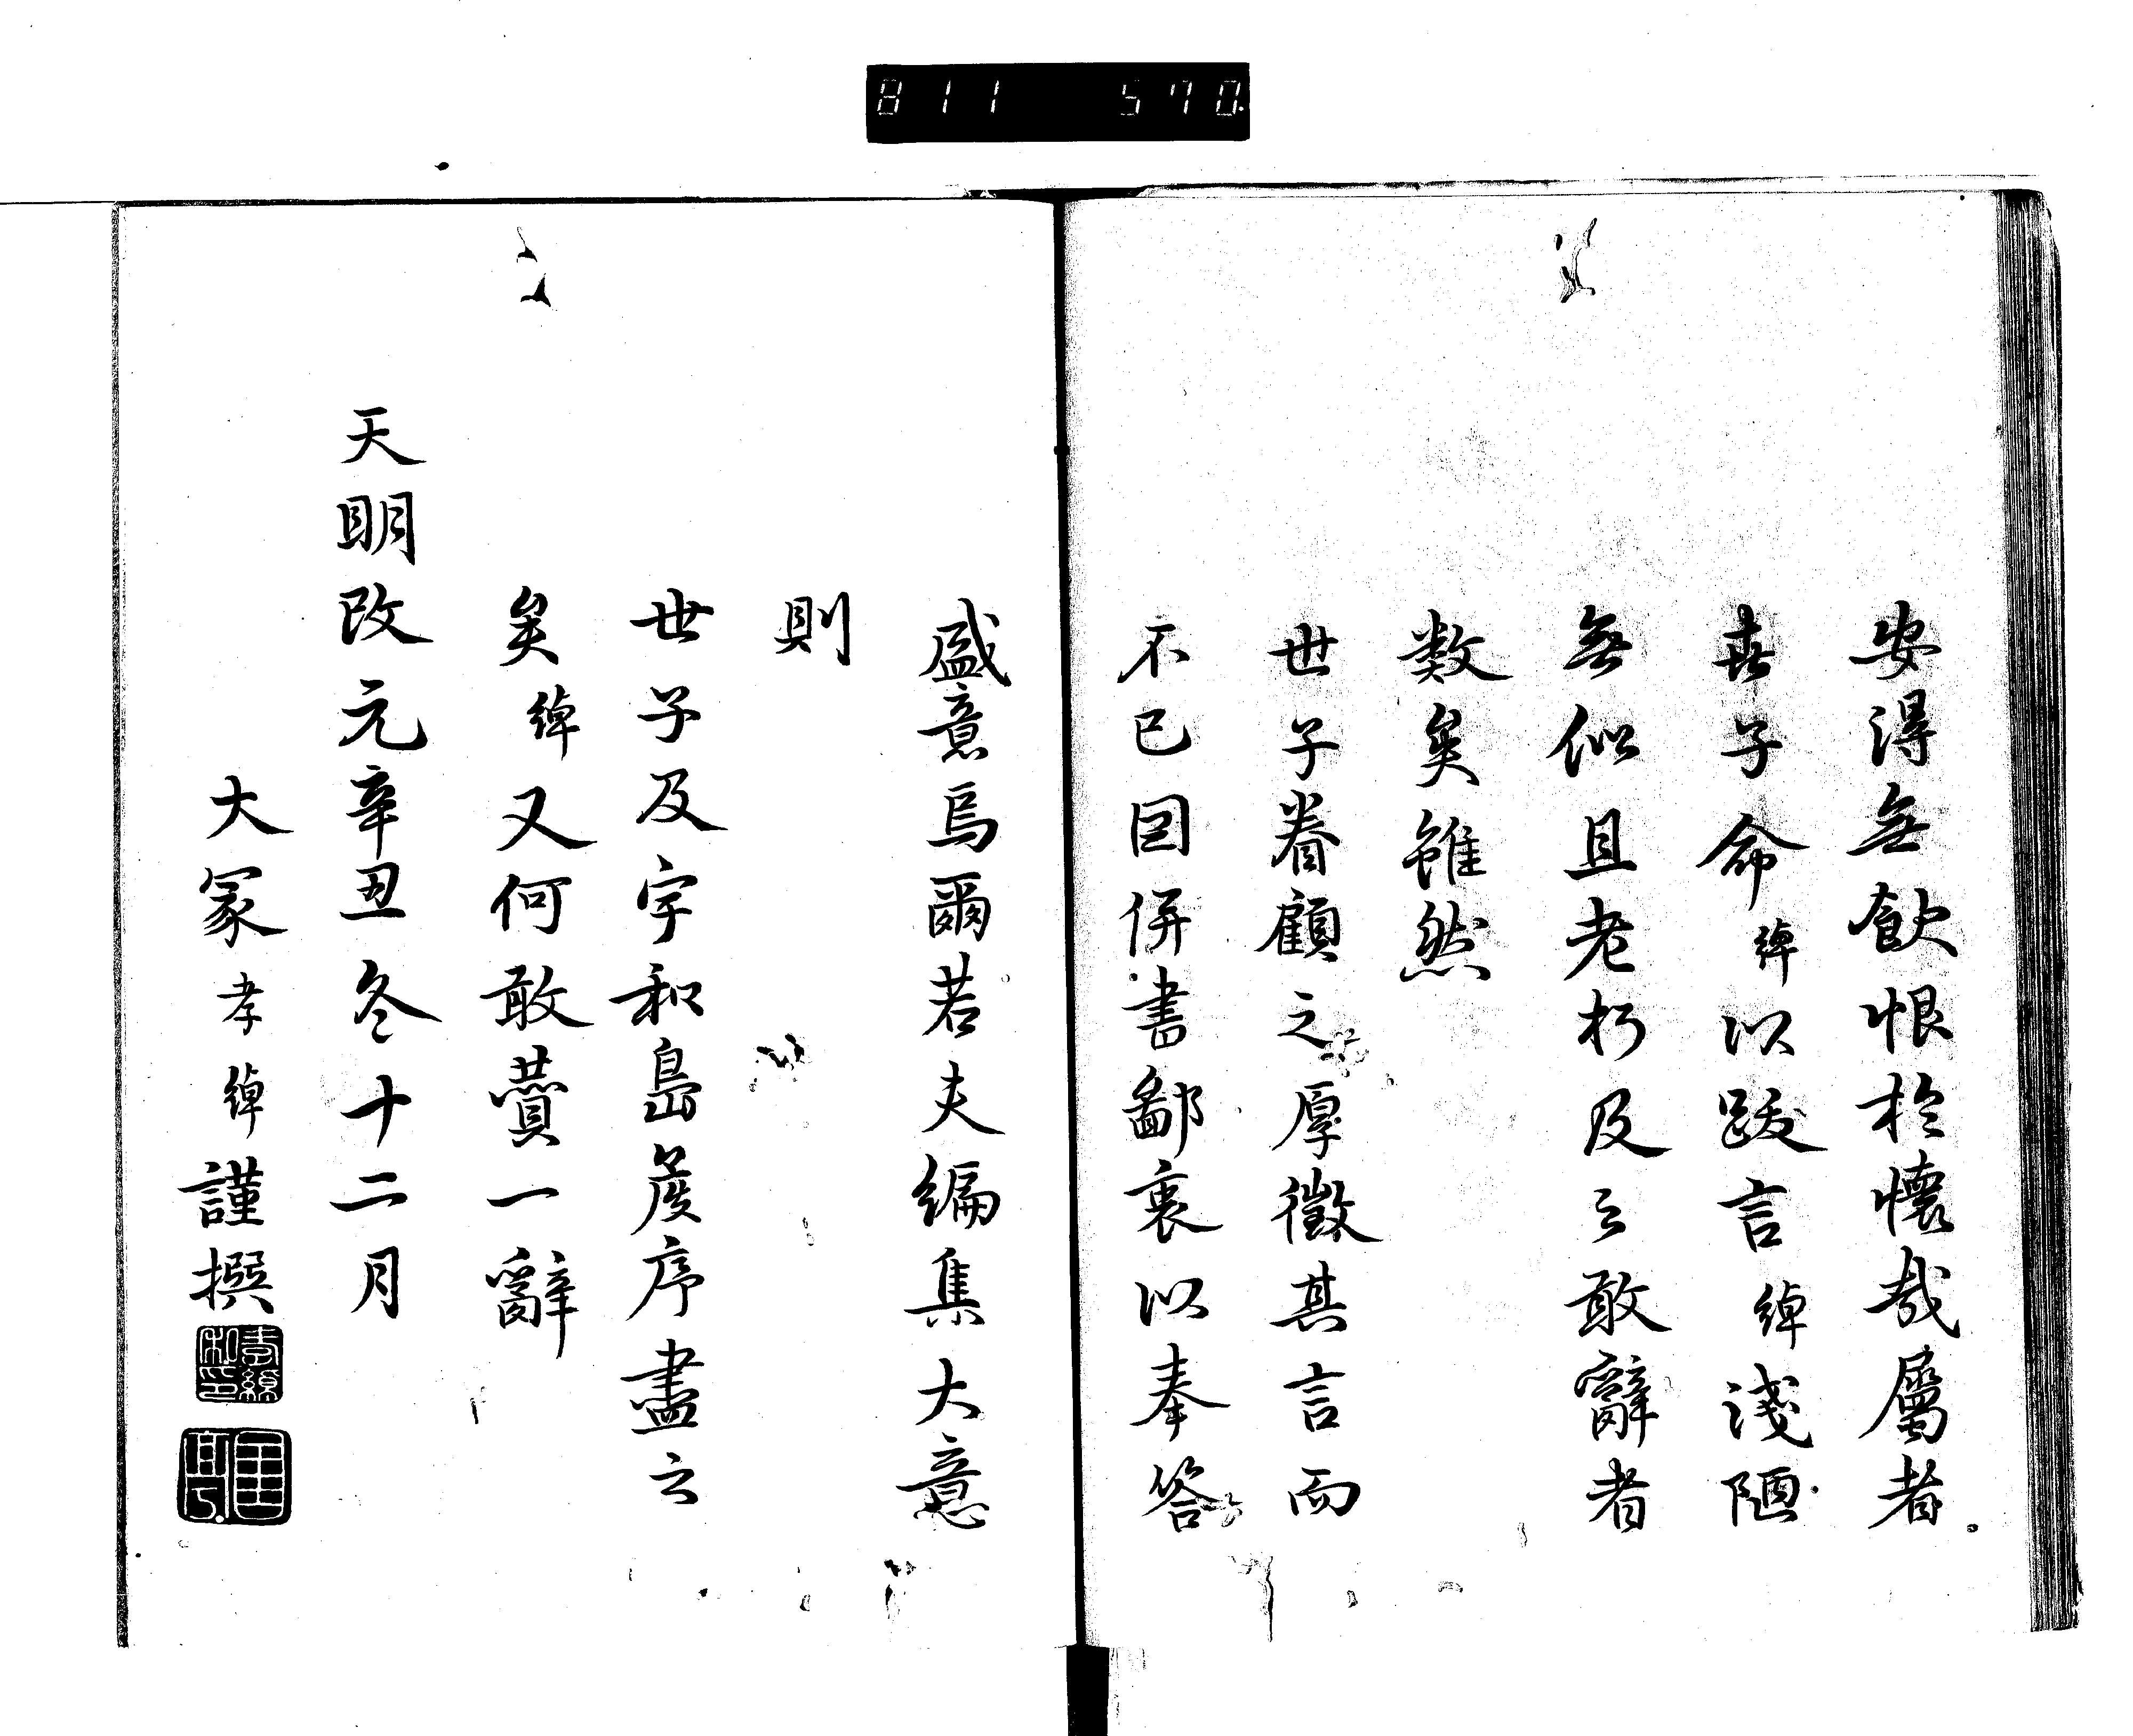 811 570
安得無飲恨於懷哉屬者
世子命綽以跋言綽淺陋
無似且老朽及之敢辭者
数矣雖然
世子眷顧之厚徵其言而
不已因併書鄙裏以奉答
盛意焉爾若夫編集大意
則
世子及宇和島侯序盡之
矣綽又何敢賛一辭
天明改元辛丑冬十二月
大冢孝綽謹撰